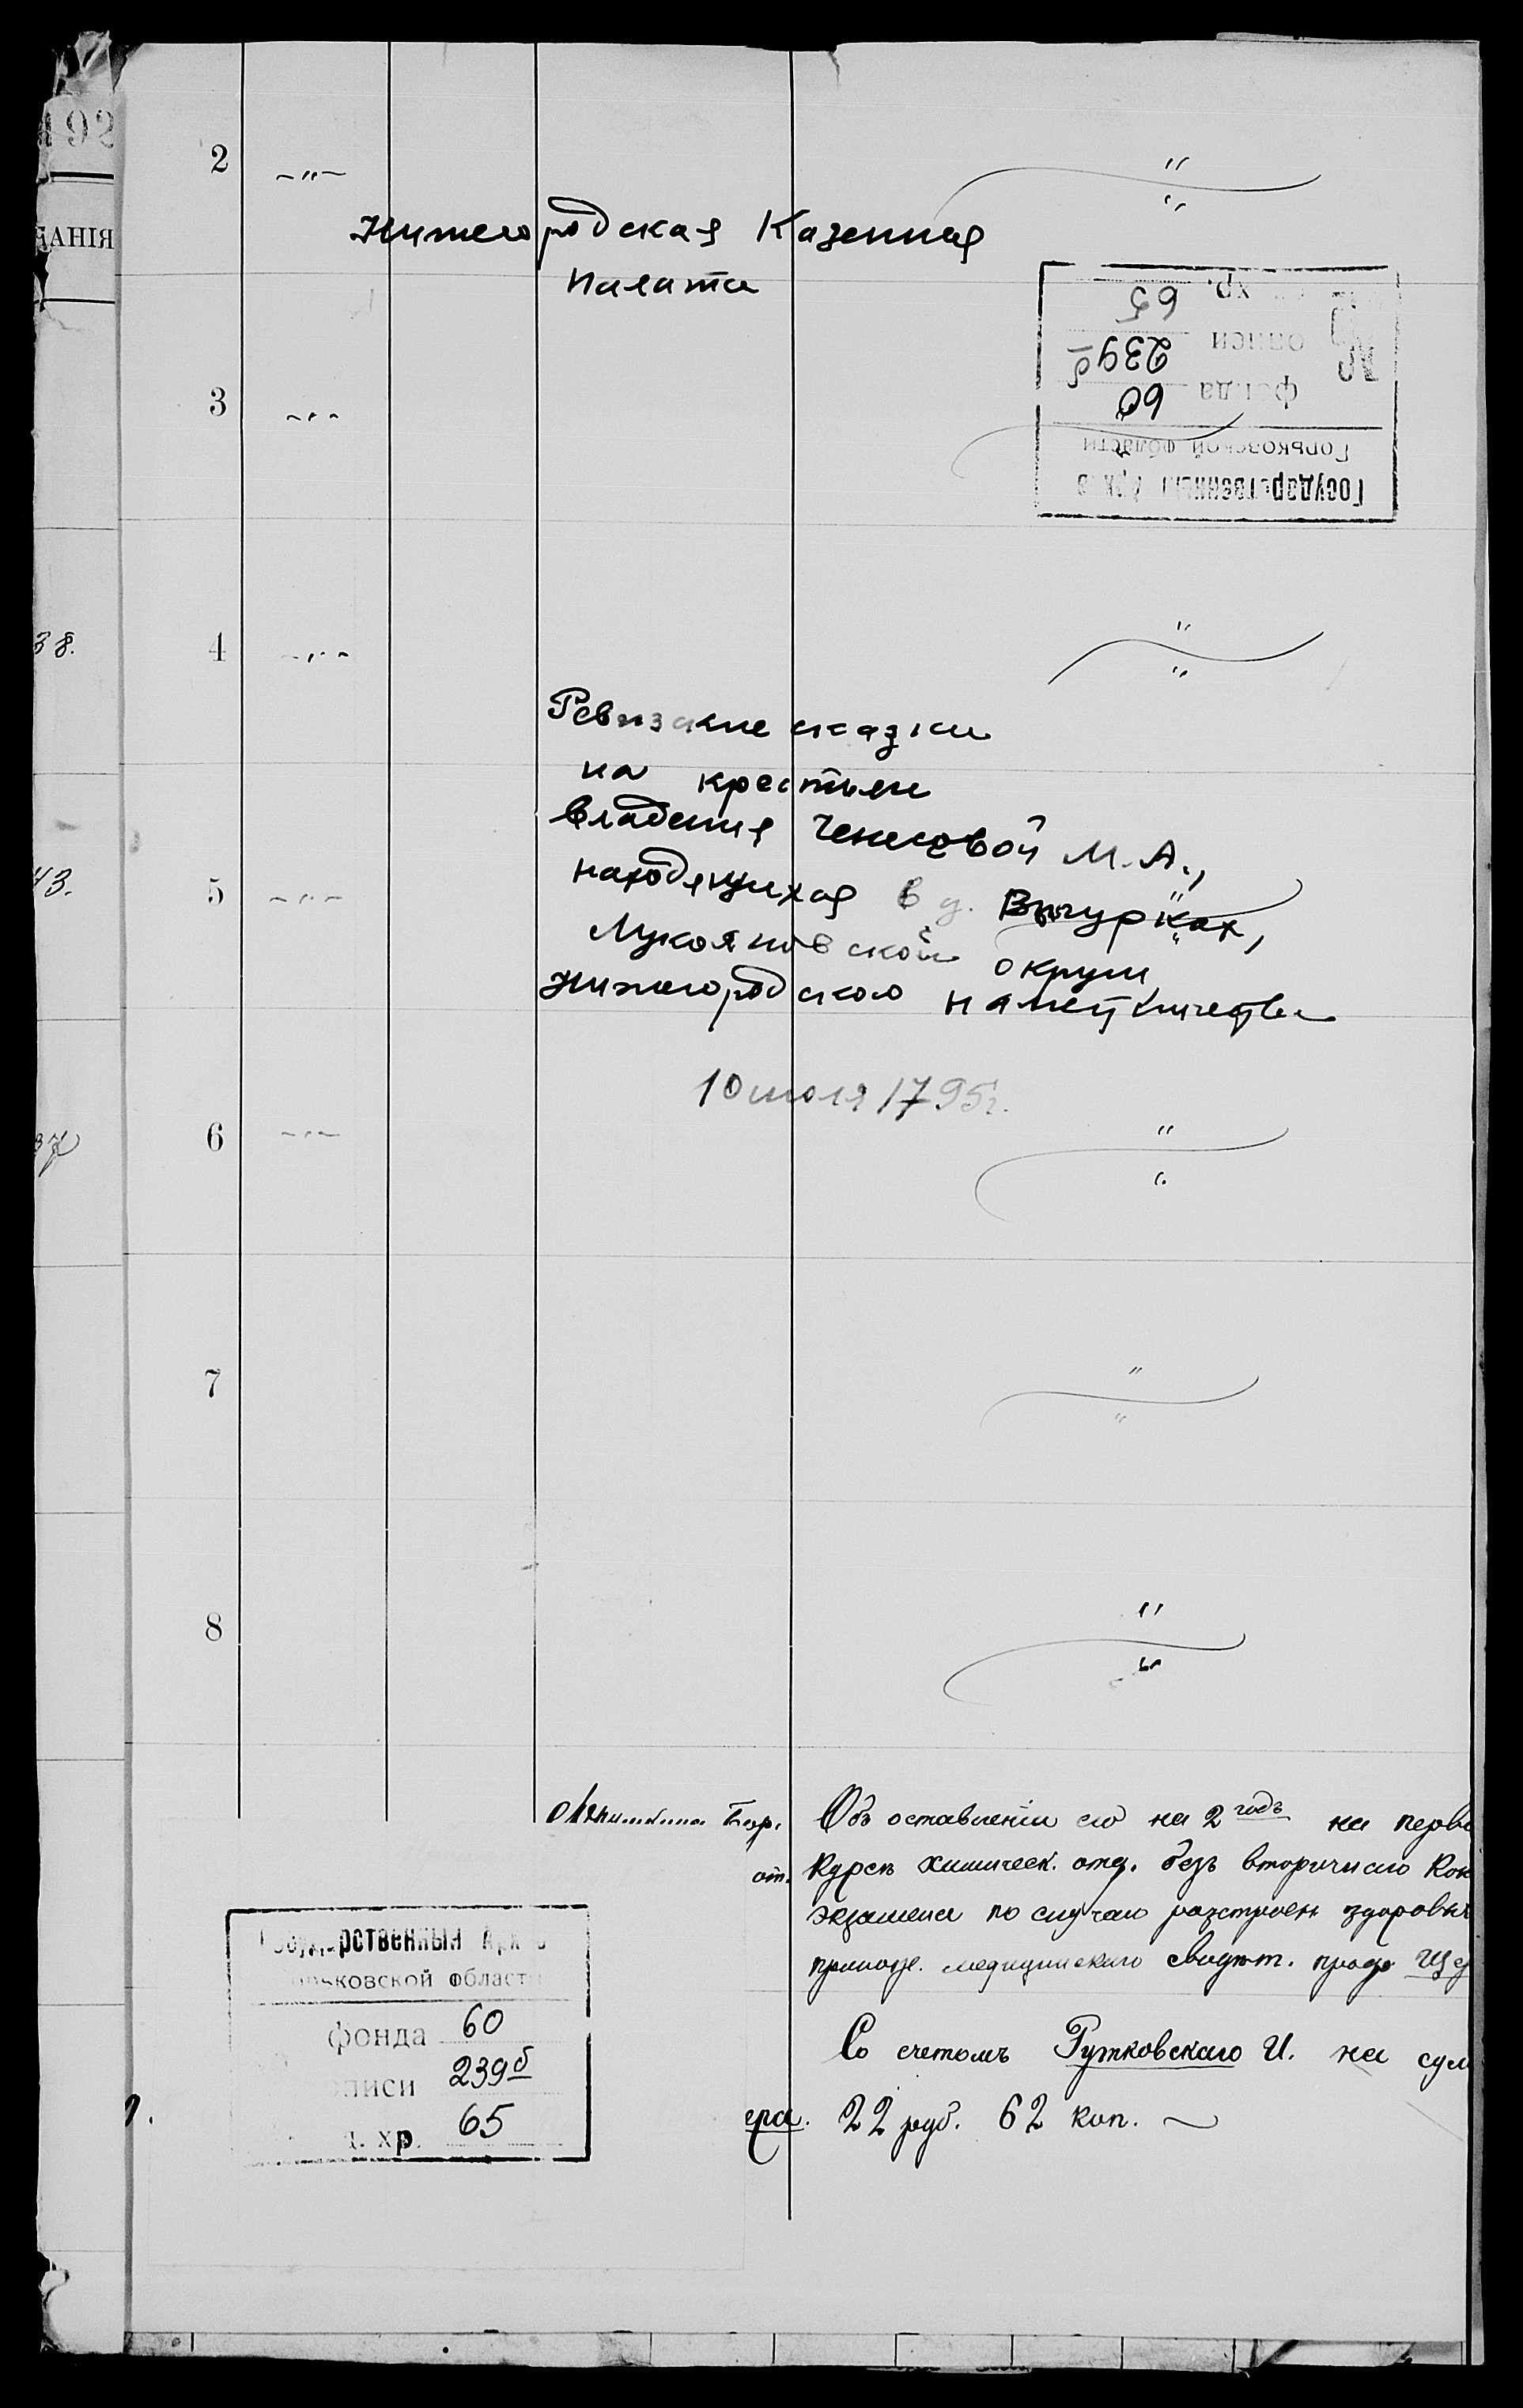 192
АНІЯ
2
Нижегородская Казенная
Палата
ед. хр. 65
№ описи 239б
фонда 60
Горьковской области
Государственный Архив
3
38.
4
Ревизские сказки
на крестьян
владения М. А.,
43.
5
находящихся в д.
Лукояновской округи
Нижегородского наместничества
10 июля 1795 г.
37
6
7
8
Объ оставленіи его на 2 годъ на перво
от. Курсѣ химическ. отд. безъ вторичнаго Кон
экзамена по случаю разстроен здоровья
прилож. медицинскаго свидѣт.
Со счетомъ Рутковскаго И. на сум
22 руб. 62 коп.
Государственный Архив
Горьковской области
фонда 60
описи 239б
ед. хр. 65